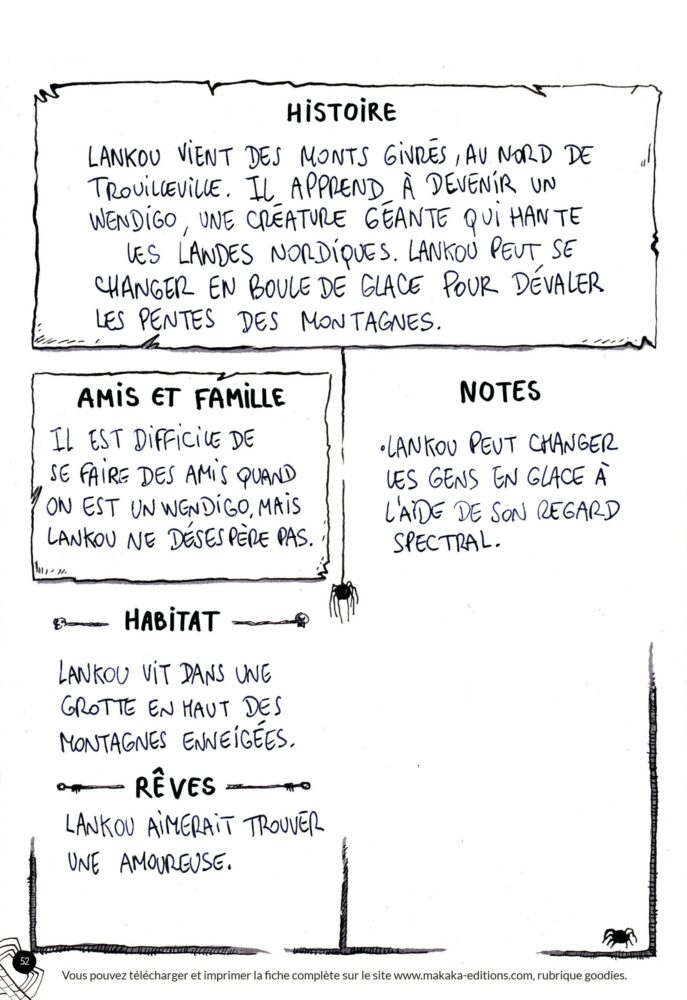 HISTOIRE
LANKOU VIENT DES MONTS GIVRÉS, AU NORD DE
TROUILLEVILLE. IL APPREND À DEVENIR UN
WENDIGO, UNE CRÉATURE GÉANTE QUI HANTE
LES LANDES NORDIQUES. LANKOU PEUT SE
CHANGER EN BOULE DE GLACE POUR DÉVALER
LES PENTES DES MONTAGNES.
AMIS ET FAMILLE
IL EST DIFFICILE DE
SE FAIRE DES AMIS QUAND
ON EST UN WENDIGO, MAIS
LANKOU NE DÉSESPÈRE PAS.
HABITAT
LANKOU VIT DANS UNE
GROTTE EN HAUT DES
MONTAGNES ENNEIGÉES.
RÊVES
LANKOU AIMERAIT TROUVER
UNE AMOUREUSE.
NOTES
•LANKOU PEUT CHANGER
LES GENS EN GLACE À
L'AIDE DE SON REGARD
SPECTRAL.
52
Vous pouvez télécharger et imprimer la fiche complète sur le site www.makaka-editions.com, rubrique goodies.